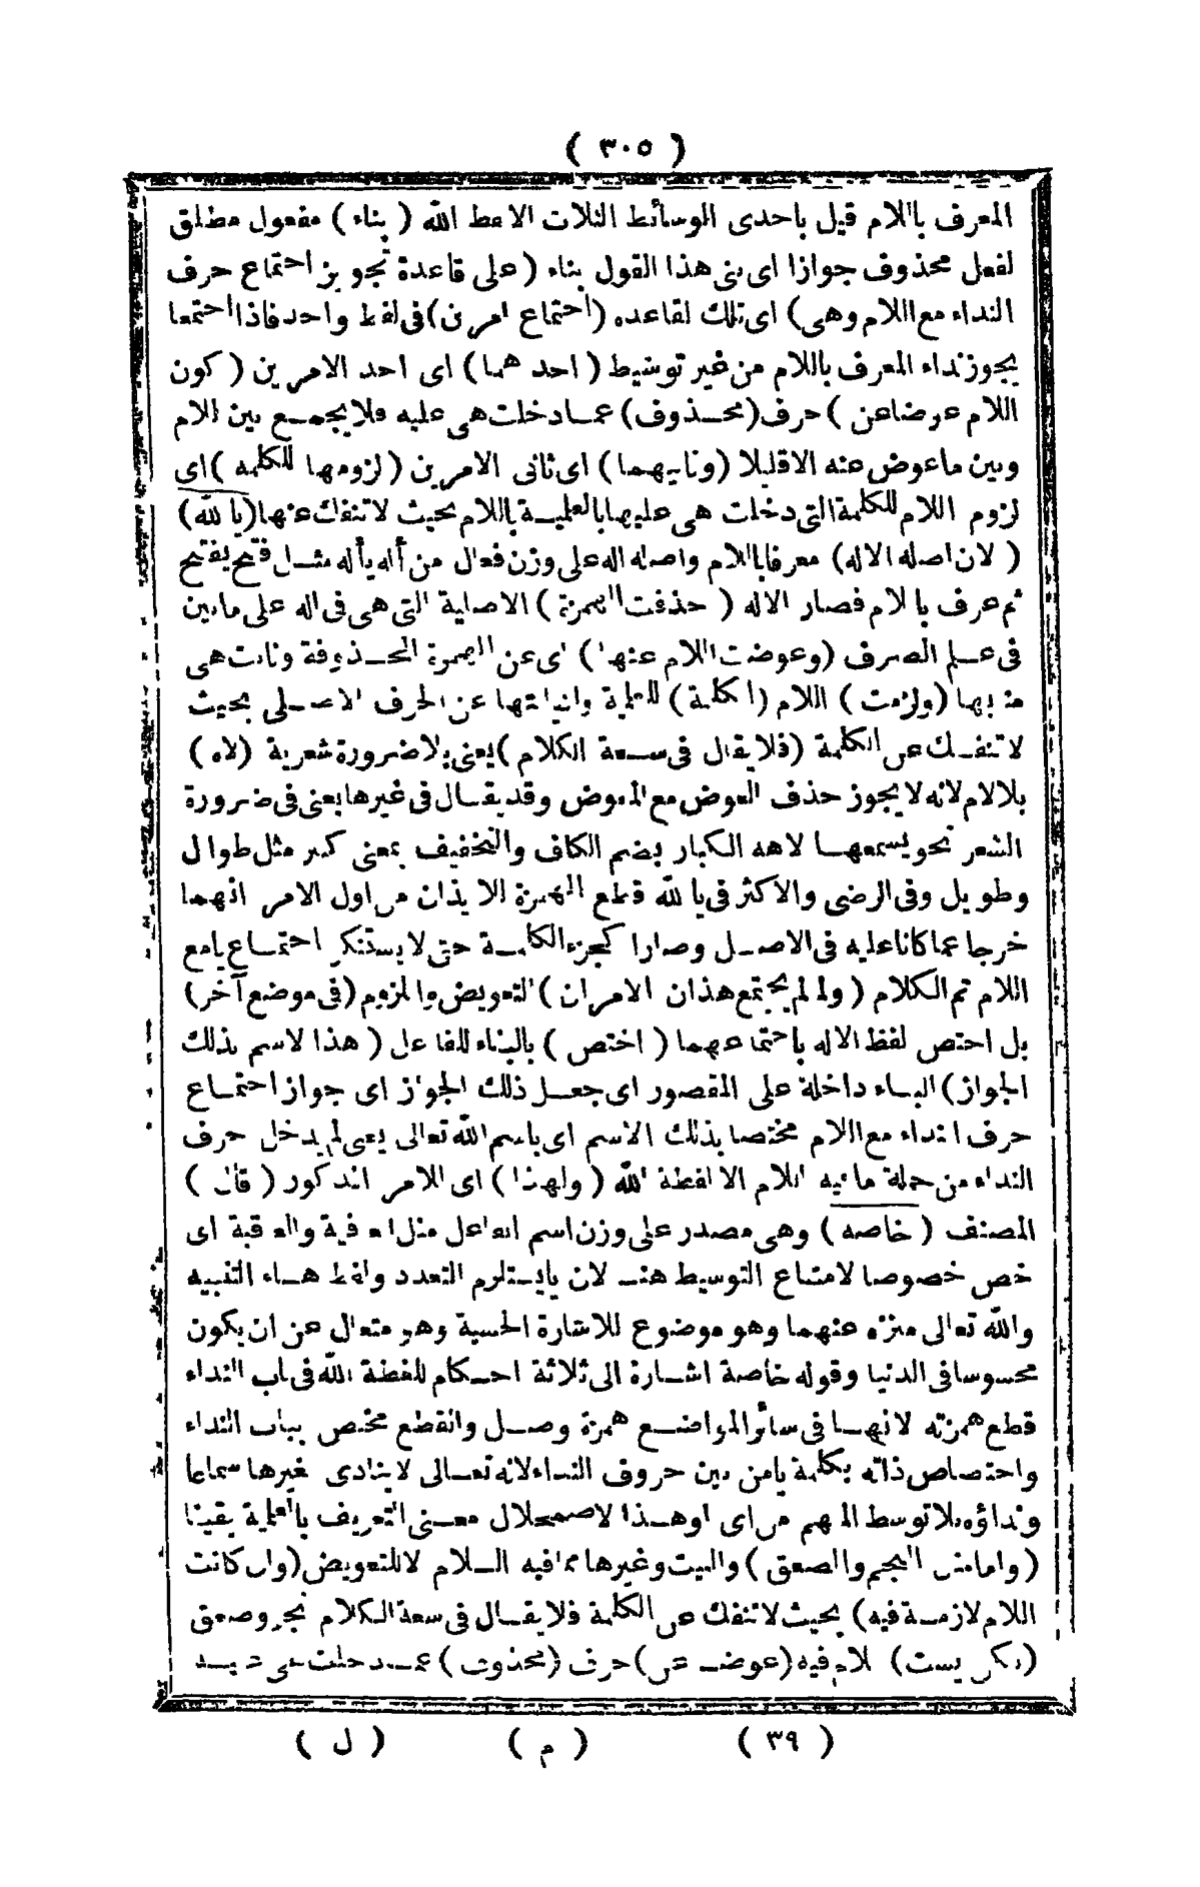 ( ٣٠٥ )
المعرف باللام قيل باحدى الوسائط الثلاث الا لفظ الله ( بناء ) مفعول مطلق
لفعل محذوف جوازا اى بنى هذا القول بناء ( على قاعدة تجويز اجتماع حرف
النداء مع اللام وهى ) اى تلك القاعده ( اجتماع امرين ) فى لفظ واحد فاذا اجتمعا
يجوز نداء المعرف باللام من غير توسيط ( احدهما ) اى احد الامرين ( كون
اللام عوضا عن ) حرف ( محذوف ) عما دخلت هى عليه فلا يجمع بين اللام
وبين ماعوض عنه الاقليلا ( وثانيهما ) اى ثانى الامرين ( لزومها للكلمه ) اى
لزوم اللام للكلمة التى دخلت هى عليها بالعلمية باللام بحيث لا تنفك عنها ( يالله )
( لان اصله الاله ) معرفا باللام واصله اله على وزن فعال من أله يأله مثل فتح يفتح
ثم عرف باللام فصار الاله ( حذفت الهمزة ) الاصلية التى هى فى اله على مابين
فى علم الصرف ( وعوضت اللام عنها ) اى عن الهمزة المحذوفة ونابت هى
منابها ( ولزمت ) اللام ( الكلمة ) للعلمية ونيابتها عن الحرف الاصلى بحيث
لا تنفك عن الكلمة ( فلا يقال فى سعة الكلام ) يعنى بلا ضرورة شعرية ( لاه )
بلالام لانه لا يجوز حذف العوض مع المعوض وقد يقال فى غيرها يعنى فى ضرورة
الشعر نحو يسمعها لاهه الكبار بضم الكاف والتخفيف بمعنى كبير مثل طوال
وطويل وفى الرضى والاكثر فى يالله قطع الهمزة للايذان من اول الامر انهما
خرجا عما كانا عليه فى الاصل وصارا كجزء الكلمة حتى لا يستنكر اجتماع يامع
اللام تم الكلام ( ولما لم يجتمع هذان الامران ) التعويض واللزوم ( فى موضع آخر )
بل اختص لفظ الاله باجتماعهما ( اختص ) بالبناء للفاعل ( هذا لاسم بذلك
الجواز ) الباء داخلة على المقصور اى جعل ذلك الجواز اى جواز اجتماع
حرف النداء مع اللام مختصا بذلك الاسم اى باسم الله تعالى يعنى لم يدخل حرف
النداء من جملة مافيه اللام الا لفظة الله ( ولهذا ) اى للامر المذكور ( قال )
المصنف ( خاصه ) وهى مصدر على وزن اسم الفاعل مثل العافية والعاقبة اى
خص خصوصا لامتناع التوسيط هنا لان يستلزم التعدد ولفظ هاء التنبيه
والله تعالى منزه عنهما وهو موضوع للاشارة الحسية وهو متعال عن ان يكون
محسوسا فى الدنيا وقوله خاصة اشارة الى ثلاثة احكام للفظة الله فى باب النداء
قطع همزته لانها فى سائر المواضع همزة وصل والقطع مختص بباب النداء
واختصاص ذاته بكلمة يامن بين حروف النداء لانه تعالى لا ينادى بغيرها سماعا
ونداؤه بلاتوسط المبهم من اى اوهذا لاضمحلال معنى التعريف بالعلمية يقينا
( وامامثل النجم والصعق ) والبيت وغيرها مما فيه اللام لا للتعويض ( وان كانت
اللام لازمة فيه ) بحيث لا تنفك عن الكلمة فلا يقال فى سعة الكلام نجم وصعق
( لكن ليست ) للام فيه ( عوضا عن ) حرف ( محذوف ) عما دخلت هى عليه
( ٣٩ ) ( م ) ( ل )